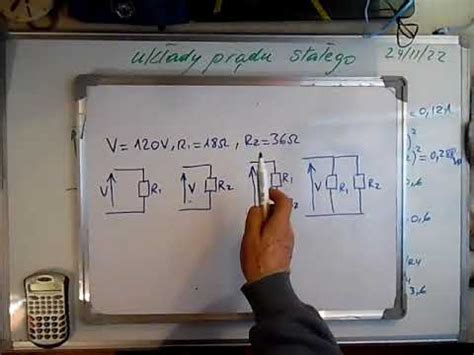 układy prądu stałego 24/11/22
V = 120V, R1 = 18Ω, R2 = 36Ω
V R1 V R2 V R1 V R1 R2
R2
= 0,121
)²
) = 0,28
0,6
3,6